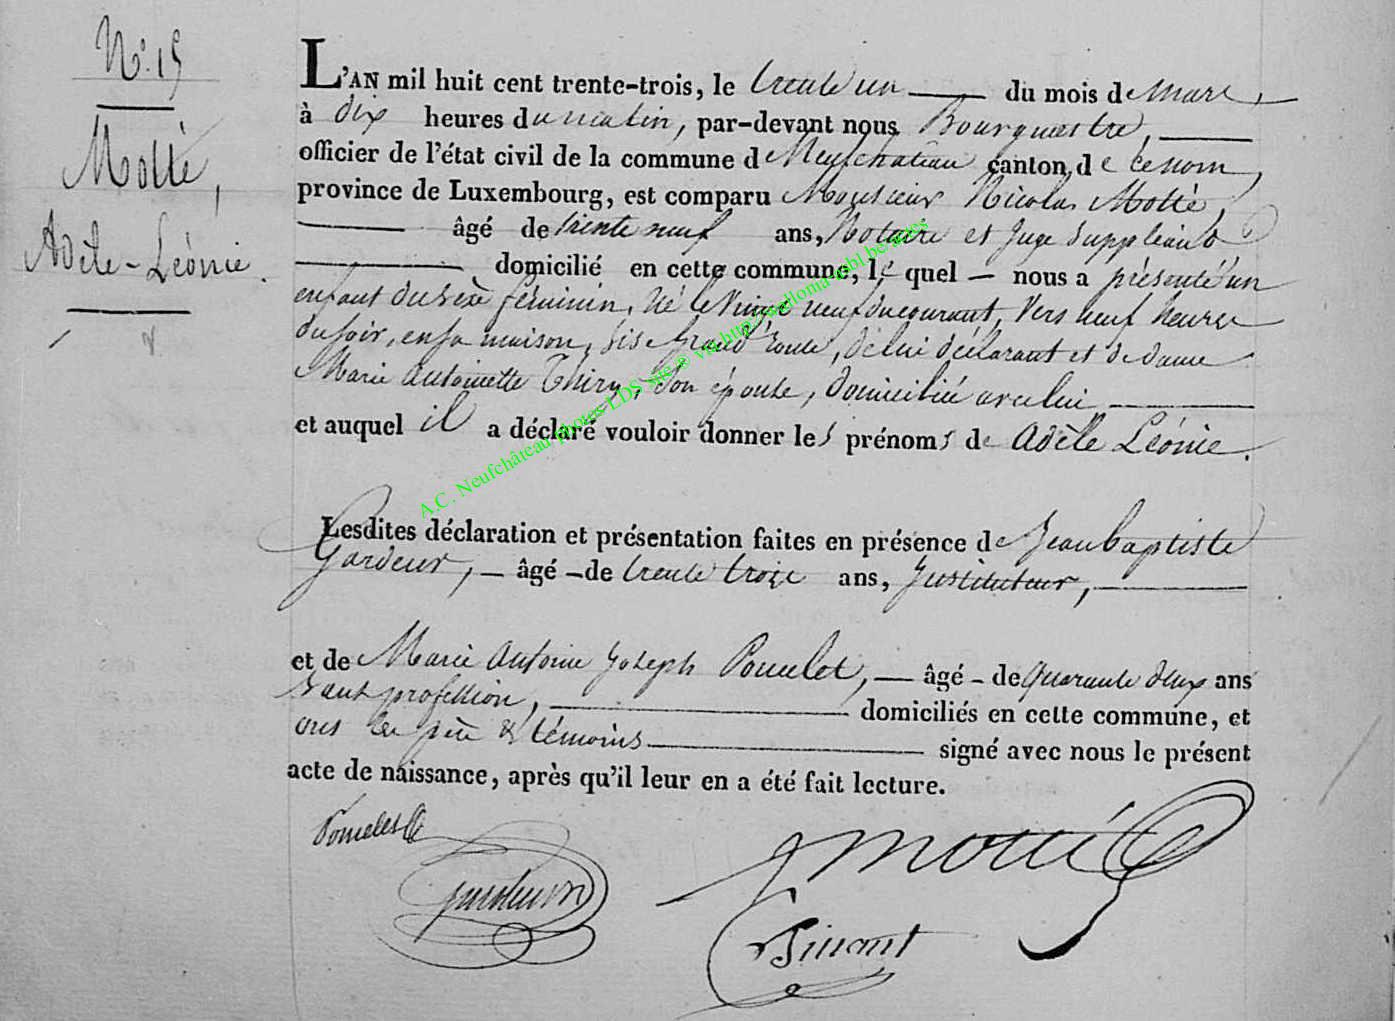 N.º 15
Motté,
Adèle-Léonie.
L'AN mil huit cent trente-trois, le trente un du mois de mars,
à dix heures du matin, par-devant nous Bourgmestre,
officier de l'état civil de la commune de Neufchâteau canton de ce nom,
province de Luxembourg, est comparu Monsieur Nicolas Motté,
âgé de trente neuf ans, Notaire et Juge Suppléant
domicilié en cette commune, le quel — nous a présenté un
enfant du sexe féminin, né le vingt neuf du courant, vers neuf heures
du soir, en sa maison, sise Grand'route, de lui déclarant et de dame
Marie Antoinette Thiry, son épouse, domiciliée avec lui
et auquel il a déclaré vouloir donner les prénoms de Adèle Léonie.
Lesdites déclaration et présentation faites en présence de Jean baptiste
Gardeur, — âgé — de trente trois ans, Instituteur,
et de Marie Antoine Joseph Poncelet, — âgé — de quarante deux ans
sans profession, domiciliés en cette commune, et
ont les père & témoins signé avec nous le présent
acte de naissance, après qu'il leur en a été fait lecture.
Poncelet
Motté
Gardeur
A.C. Neufchâteau photos LDS site ® via